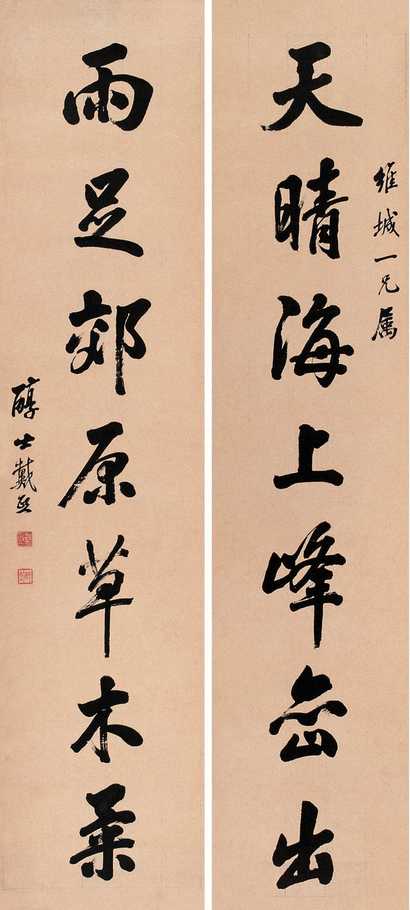 維城一兄属
天晴海上峰峦出
雨足郊原草木柔
醇士戴熙